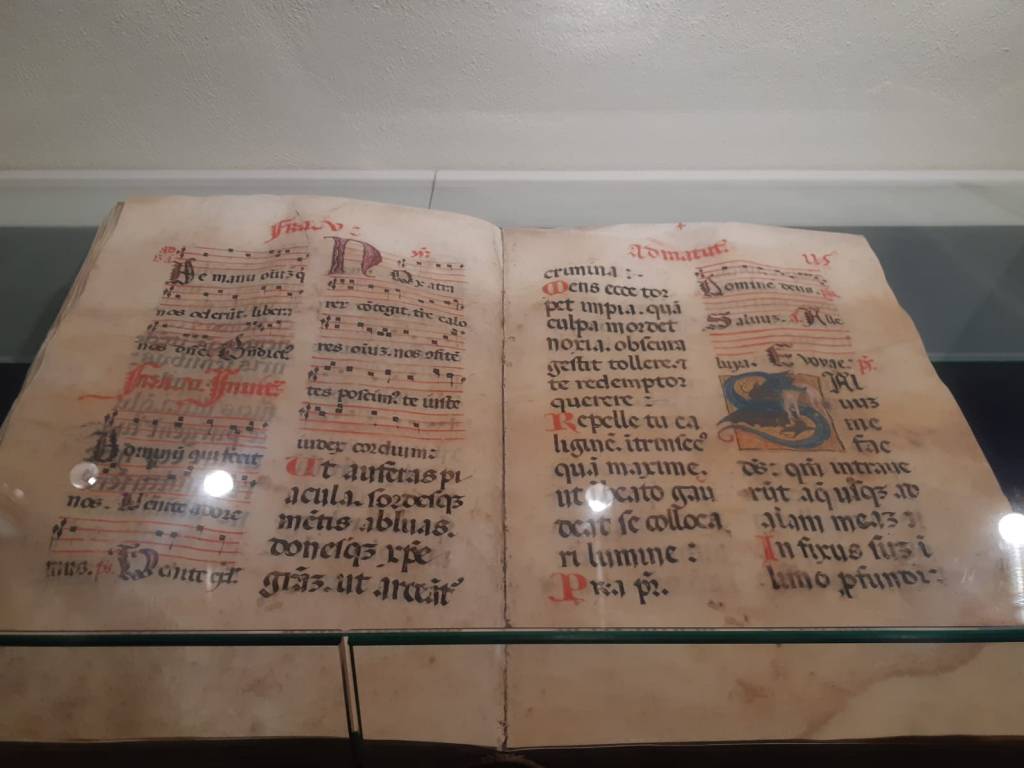 Fra. v :
De manu oīuz q
nos oderūt. libera
nos dñe.
Dominū qui fecit
nos. Venite adore
mus. ps. Venite
Nox atra
rer cōtegit. tre calo
res oīuz. nos
tes te iuste
iudex cordium:
Ut auferas pi
acula. sordesqz
mētis abluas.
donesqz xp̄e
grāz. ut arceāt
Ad matut
crimina :-
Mens ecce tor
pet impia. quā
culpa mordet
noxia. obscura
gestit tollere. ⁊
te redemptor
querere :
Repelle tu ca
liginē. ītrinsec9
quā maxime.
ut vocato gau
deat se colloca
ri lumine :
Pr̄a pr̄.
Domine deus.
Saluuz. Alle
luya. Evovae. ps̄.
Saluuz
me
fac
ds̄: qm̄ intraue
rūt aq̄ usqz ad
aīam meaz :
Infixus suz ī
limo p̱fundi: